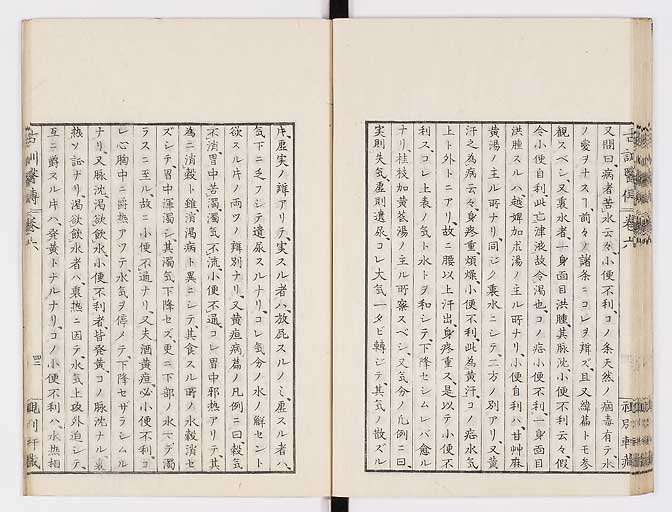 又問曰病者苦水云々小便不利コノ条天然ノ痼毒有テ水
ノ変ヲナス丁前々ノ諸条ニコレヲ辨ズ且又緯篇トモ参
観スベシ又裏水者一身面目洪腫其脉沈小便不利云々假
令小便自利此亡津液故令渇也コノ症小便不利一身面目
洪腫スルハ越婢加朮湯ノ主ル所ナリ小便自利ハ甘艸麻
黄湯ノ主ル所ナリ同ジク裏水ニシテ二方ノ別アリ又黄
汗之為病云々身疼重煩燥小便不利此為黄汗コノ症水気
上ト外トニアリ故ニ腰以上汗出身疼重ス是以テ小便不
利スコレ上表ノ気ト水トヲ和シテ下降セシムレバ愈ル
ナリ桂枝加黄芪湯ノ主ル所察スベシ又気分ノ凡例ニ曰
実則失気虚則遺尿コレ大気一タビ轉ジテ其気ノ散ズル
古訓醫傳 巻六
片虚実ノ辨アリテ実スル者ハ放屁スルノミ虚スル者ハ
気下ニ乏フシテ遺尿スルナリコレ気分ノ水ノ解セント
欲スル片ノ両ツノ辨別ナリ又黄疸病篇ノ凡例ニ曰穀気
不消胃中苦濁濁気下流小便不通コレ胃中邪熱アリテ其
為ニ消穀ト雖消渇病ト異ニシテ其食スル所ノ水穀消セ
ズシテ胃中運濁シ其濁気下降セズ更ニ下部ノ水マデ濁
ラスニ至ル故ニ小便不通ナリ又夫酒黄疸必小便不利コ
レ心胸中ニ欝熱アツテ水気ヲ停メテ下降セザラシムル
ナリ又脉沈渇欲飲水小便不利者皆発黄コノ脉沈ナル裏
熱ノ証ナリ渇欲飲水者ハ裏熱ニ因テ水気上攻外迫シテ
互ニ欝スル片ハ発黄トナルナリコノ小便不利ハ水熱相
古訓醫傳 巻六